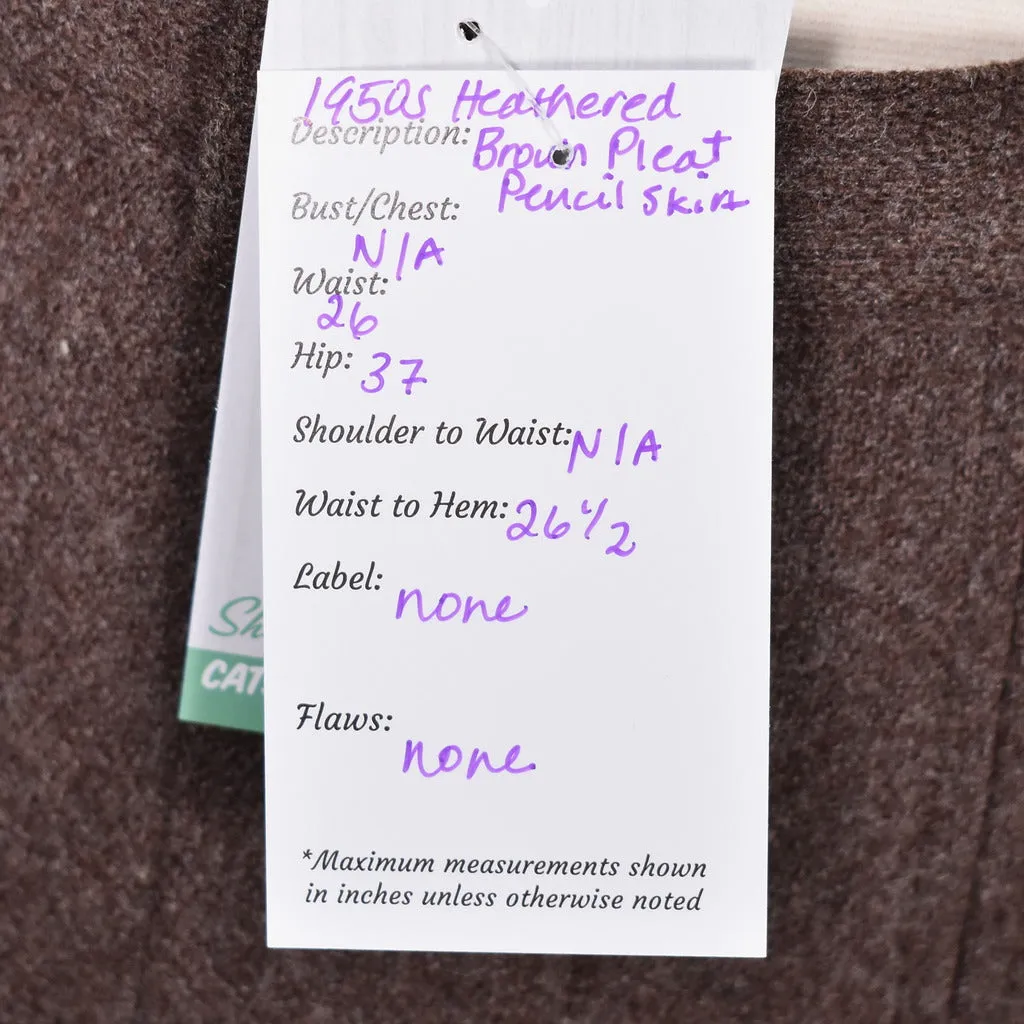 1950s Heathered
Description: Brown Pleat
Pencil Skirt
Bust/Chest:
N/A
Waist:
26
Hip: 37
Shoulder to Waist: N/A
Waist to Hem: 26 1/2
Label:
none
Sh
CAT
Flaws:
none
*Maximum measurements shown
in inches unless otherwise noted